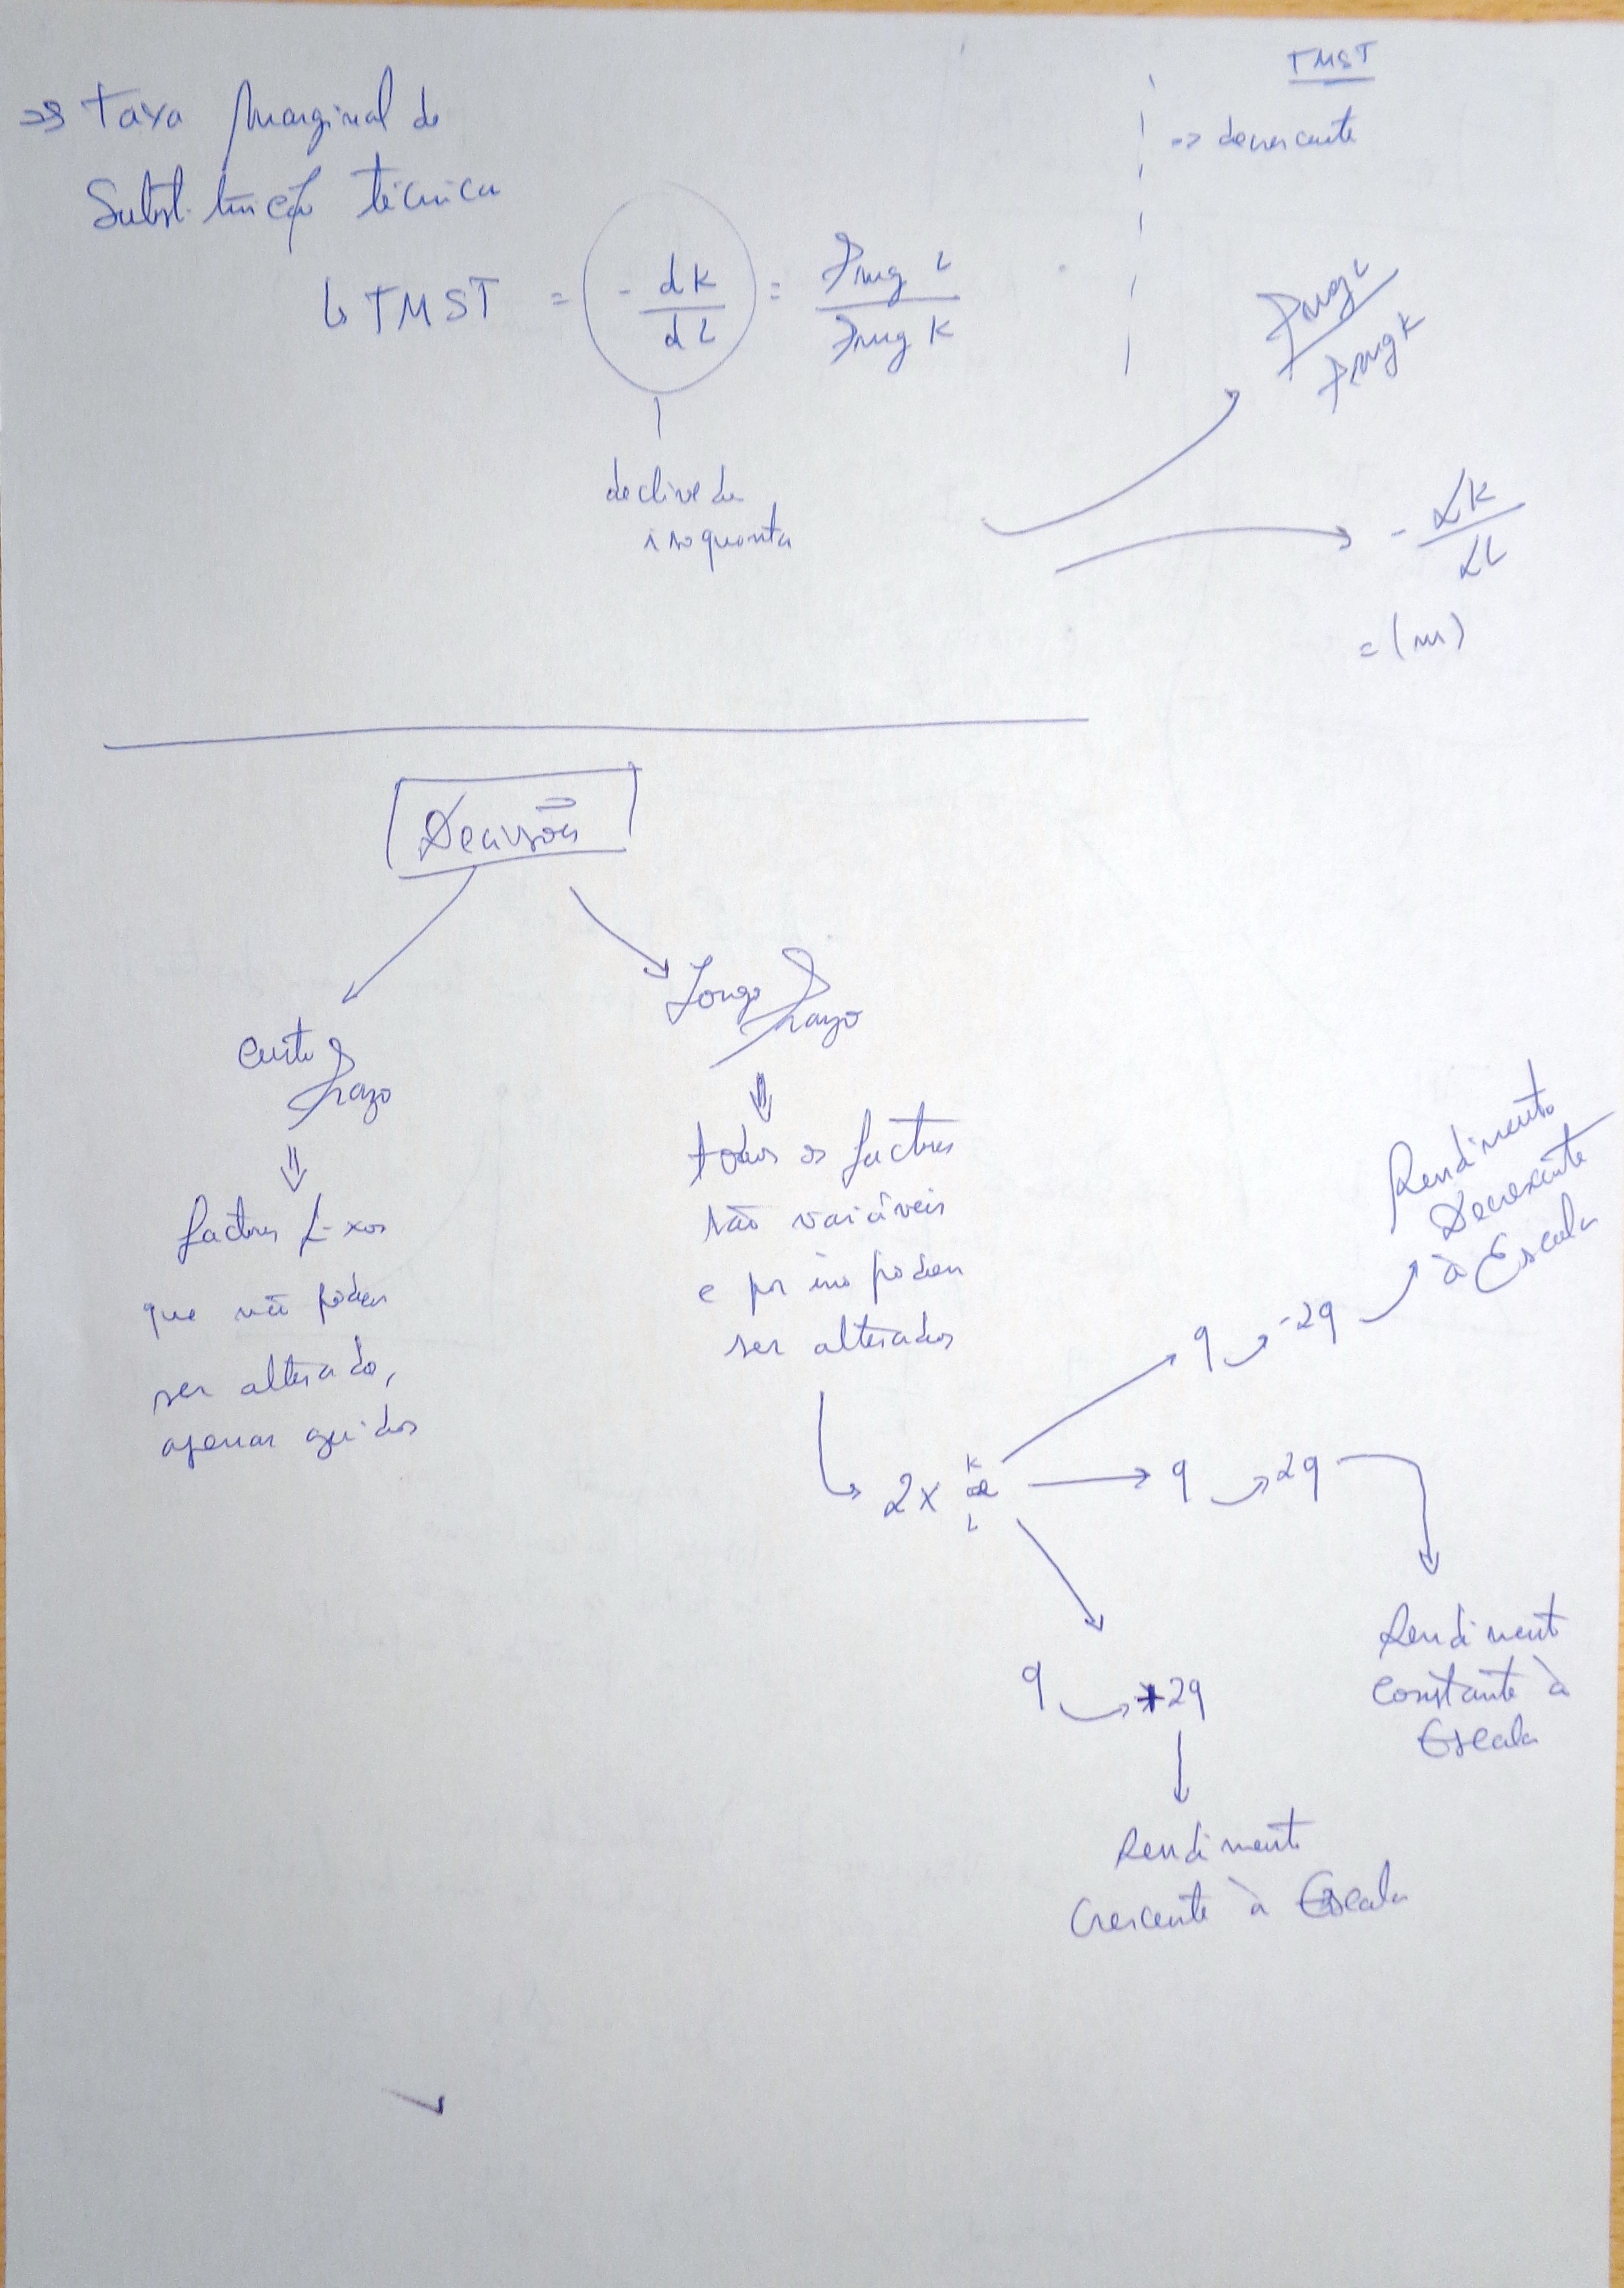 => Taxa Marginal de
Substituição técnica
↳ TMST = - dK/dL = Pmg L / Pmg K
declive da
isoquanta
TMST
=> decrescente
Pmg L / Pmg K
- dK/dL
= (m)
Decisões
Curto
Prazo
factores fixos
que não podem
ser alterado,
apenas
Longo
Prazo
todos os factores
são variáveis
e por isso podem
ser alterados
2x K
L
q → -2q
Rendimento
Decrescente
à Escala
q → 2q
Rendimento
Constante à
Escala
q → +2q
Rendimento
Crescente à Escala